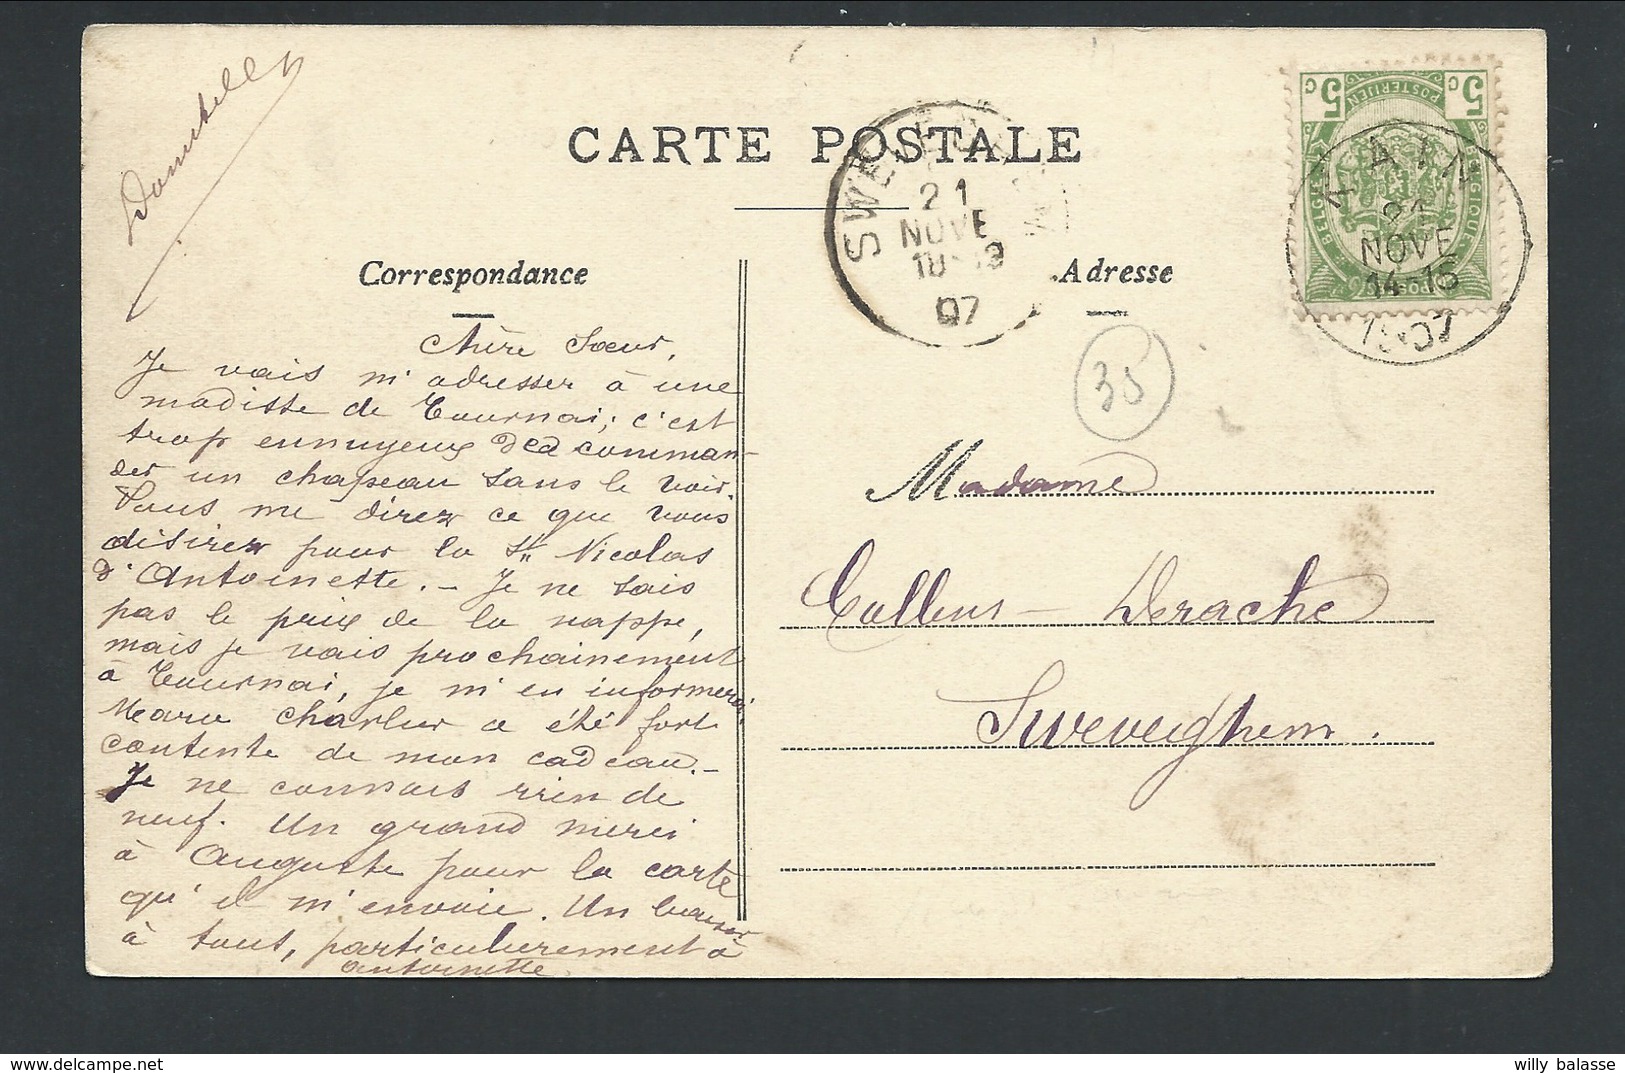 CARTE POSTALE
Correspondance
Adresse
Chère Sœur,
Je vais m'adresser à une
modiste de Tournai; c'est
trop ennuyeux de comman-
der un chapeau sans le voir.
Vous me direz ce que vous
désirez pour la St Nicolas
d'Antoinette. - Je ne sais
pas le prix de la nappe,
mais je vais prochainement
à Tournai, je m'en informerai,
Charlier a été fort
contente de mon cadeau. -
Je ne connais rien de
neuf. Un grand merci
à Auguste pour la carte
qu'il m'envoie. Un baiser
à tout, particulièrement à
antoinette
SWEVEG
21
NOVE
18-19
07
5 C
5 C
POSTERIJEN
BELGIE
BELGIQUE
POSTES
TAIN
21
NOVE
14-15
1907
35
Madame
Callens - Derache
Sweveghem.
willy balasse